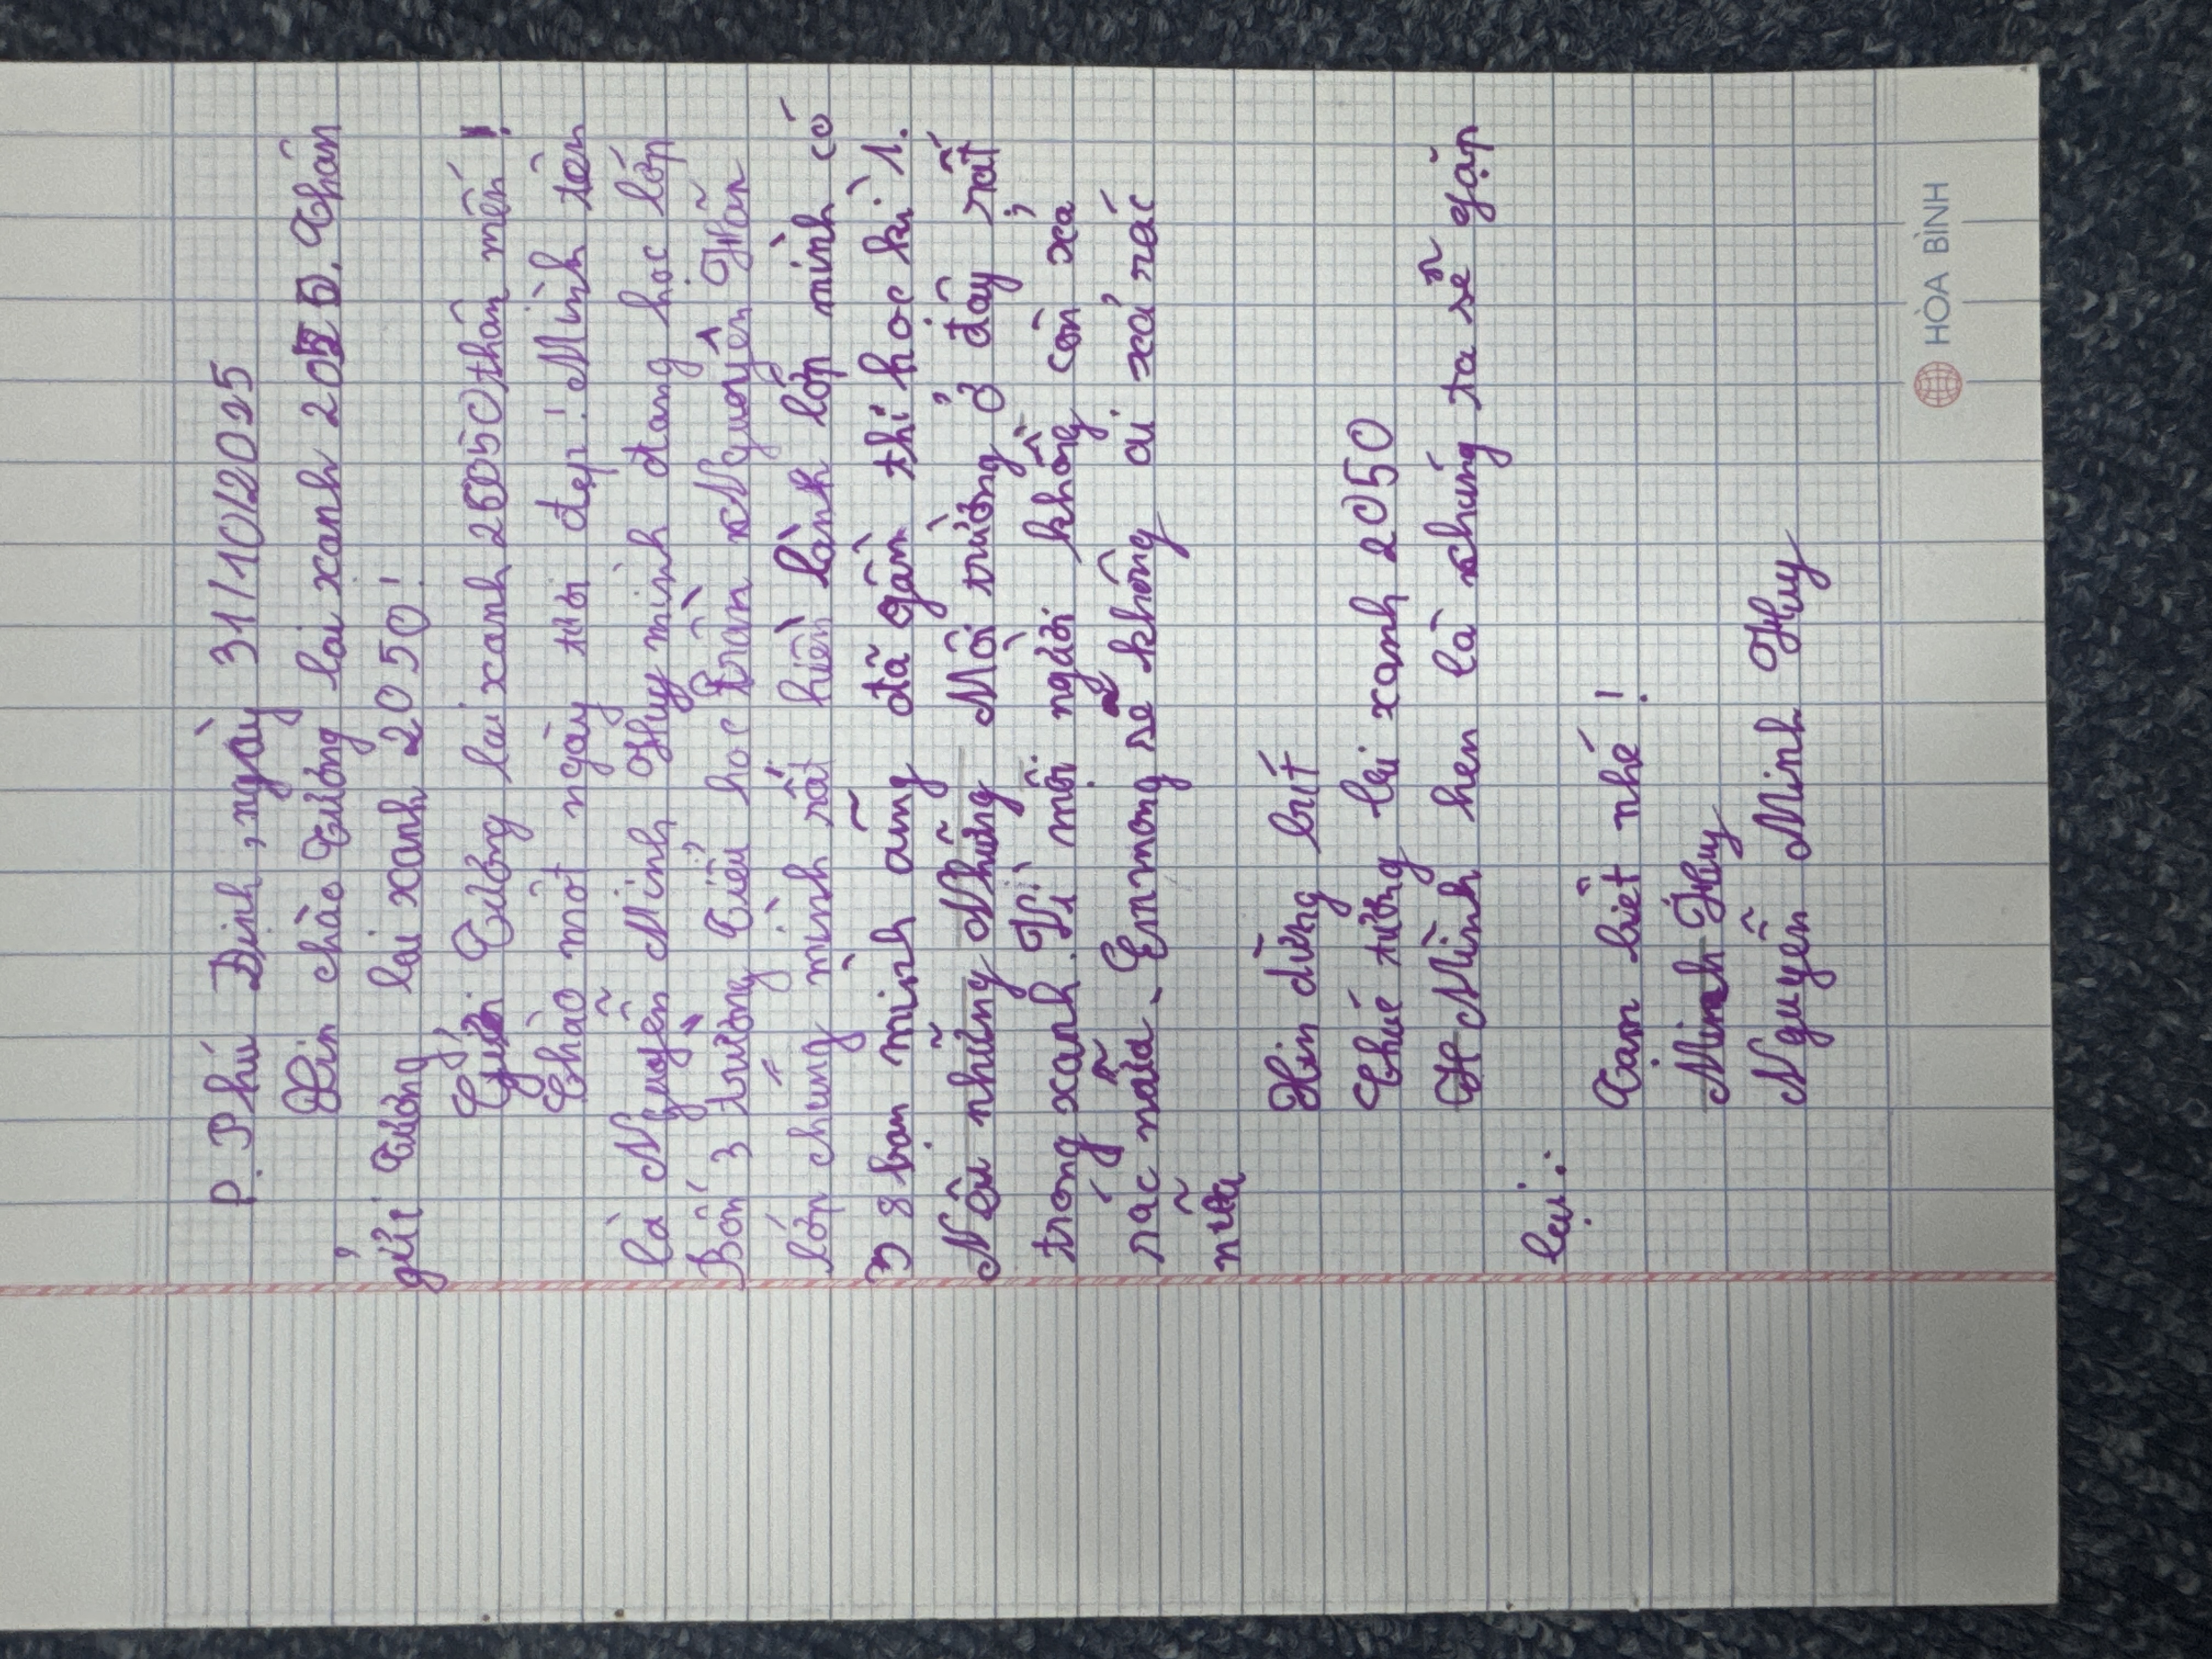 P. Phú Định, ngày 31/10/2025
Xin chào Tương lai xanh 2050. Thân
gửi Tương lai xanh 2050!
Gửi Tương lai xanh 25050 thân mến!
Chào một ngày tươi đẹp! Mình tên
là Nguyễn Minh Thuy mình đang học lớp
Bốn 3 trường Tiểu học Trần Nguyên Hãn
lớp chúng mình rất hiền lành lớp mình có
3 8 bạn mình cũng đã gần thi học kì 1.
Nêu những Nhưng Môi trường ở đây rất
trong xanh. Vì mọi người không còn xả
rác nữa. Em mong sẽ không ai xả rác
nữa
Hin dừng bút
Chúc tương lai xanh 2050
H Mình hẹn là chúng ta sẽ gặp
lại.
Tạm biệt nhé!
Minh Thuy
Nguyễn Minh Thuy
HÒA BÌNH